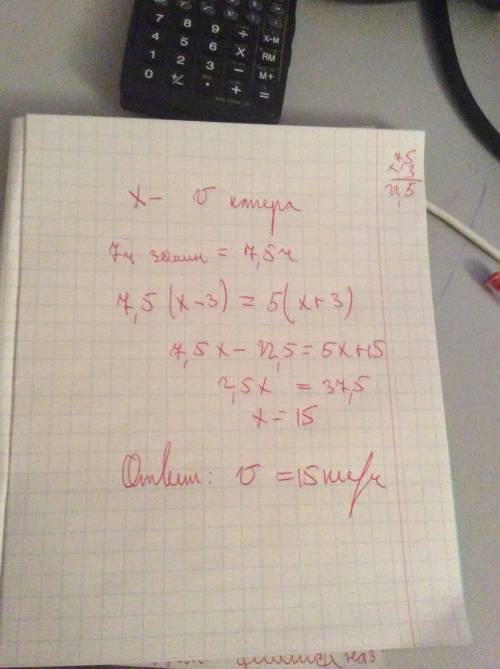 7 8 9 ÷ X-M
4 5 6 X RM
1 2 3 − M+
0 +/- · + =
7,5
x 3
22,5
x – v катера
7ч 30мин = 7,5ч
7,5 (x - 3) = 5(x + 3)
7,5x - 22,5 = 5x + 15
2,5x = 37,5
x = 15
Ответ: v = 15 км/ч